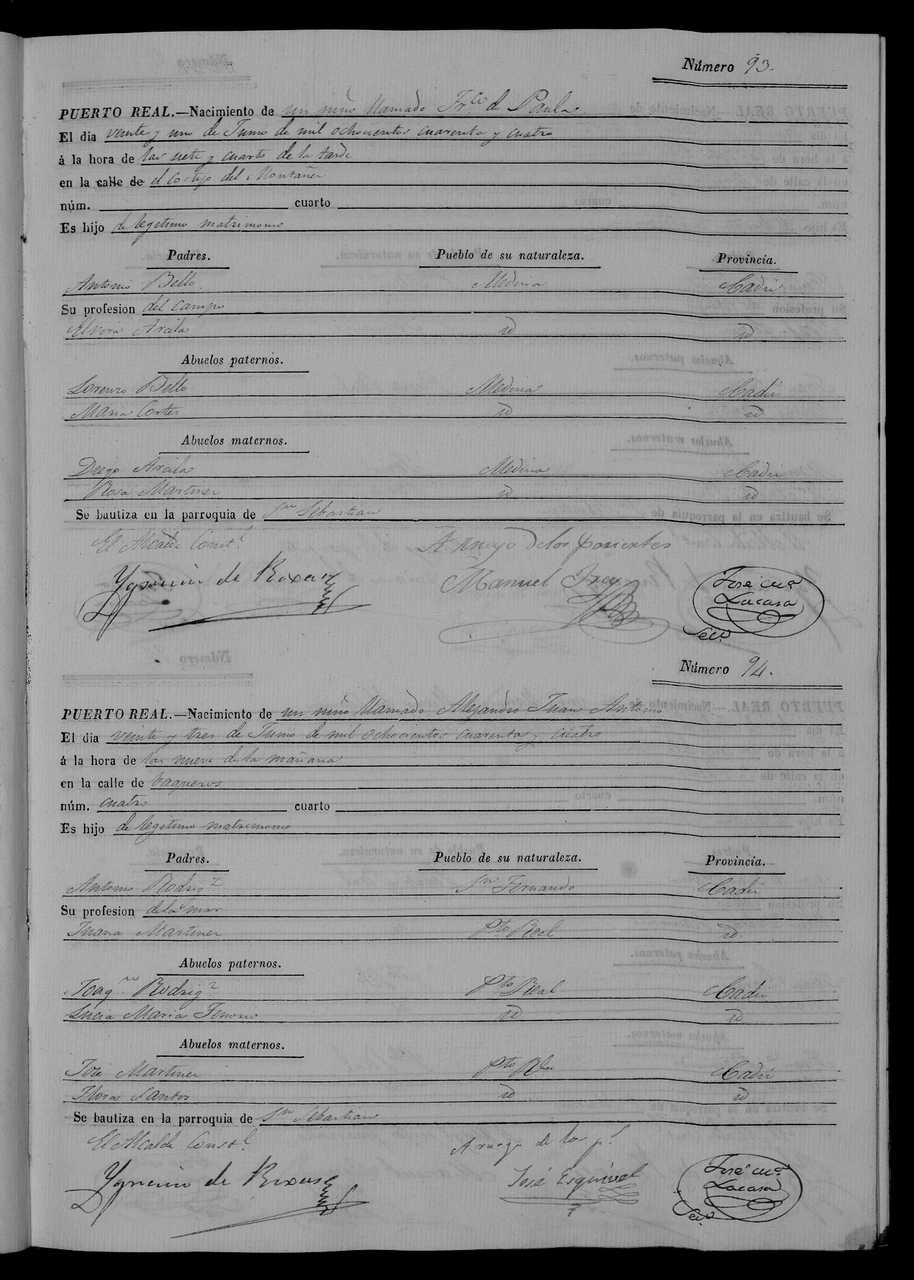 Número 93.
PUERTO REAL.—Nacimiento de un niño llamado Frco de Paula
El dia veinte y uno de Junio de mil ochocientos cuarenta y cuatro
á la hora de las siete y cuarto de la tarde
en la calle de el Cortijo del Montañes
núm. cuarto
Es hijo de legitimo matrimonio
Padres. Pueblo de su naturaleza. Provincia.
Antonio Bello. Medina Cadiz
Su profesion del campo
Elvira Arcila id id
Abuelos paternos.
Lorenzo Bello Medina Cadiz
Maria Cortes id id
Abuelos maternos.
Diego Arcila Medina Cadiz
Rosa Martinez id id
Se bautiza en la parroquia de Sn Sebastian
El Alcalde Constl. A ruego de los parientes
Ygnacio de Manuel José Ma Lacasa
Seco
Número 94.
PUERTO REAL.—Nacimiento de un niño llamado Alejandro Juan Antonio
El dia veinte y tres de Junio de mil ochocientos cuarenta y cuatro
á la hora de las nueve de la mañana
en la calle de baqueros
núm. cuatro cuarto
Es hijo de legitimo matrimonio
Padres. Pueblo de su naturaleza. Provincia.
Antonio Rodrigz Sn Fernando Cadiz
Su profesion de la mar
Juana Martinez Pto Real id
Abuelos paternos.
Joaqn Rodrigz Pto Real Cadiz
Lucia Maria id id
Abuelos maternos.
José Martinez Pto Rl Cadiz
Flora Santos id id
Se bautiza en la parroquia de Sn Sebastian
El Alcalde Constl. A ruego de los ps
Ygnacio de José Esquivel José Ma Lacasa
Seco